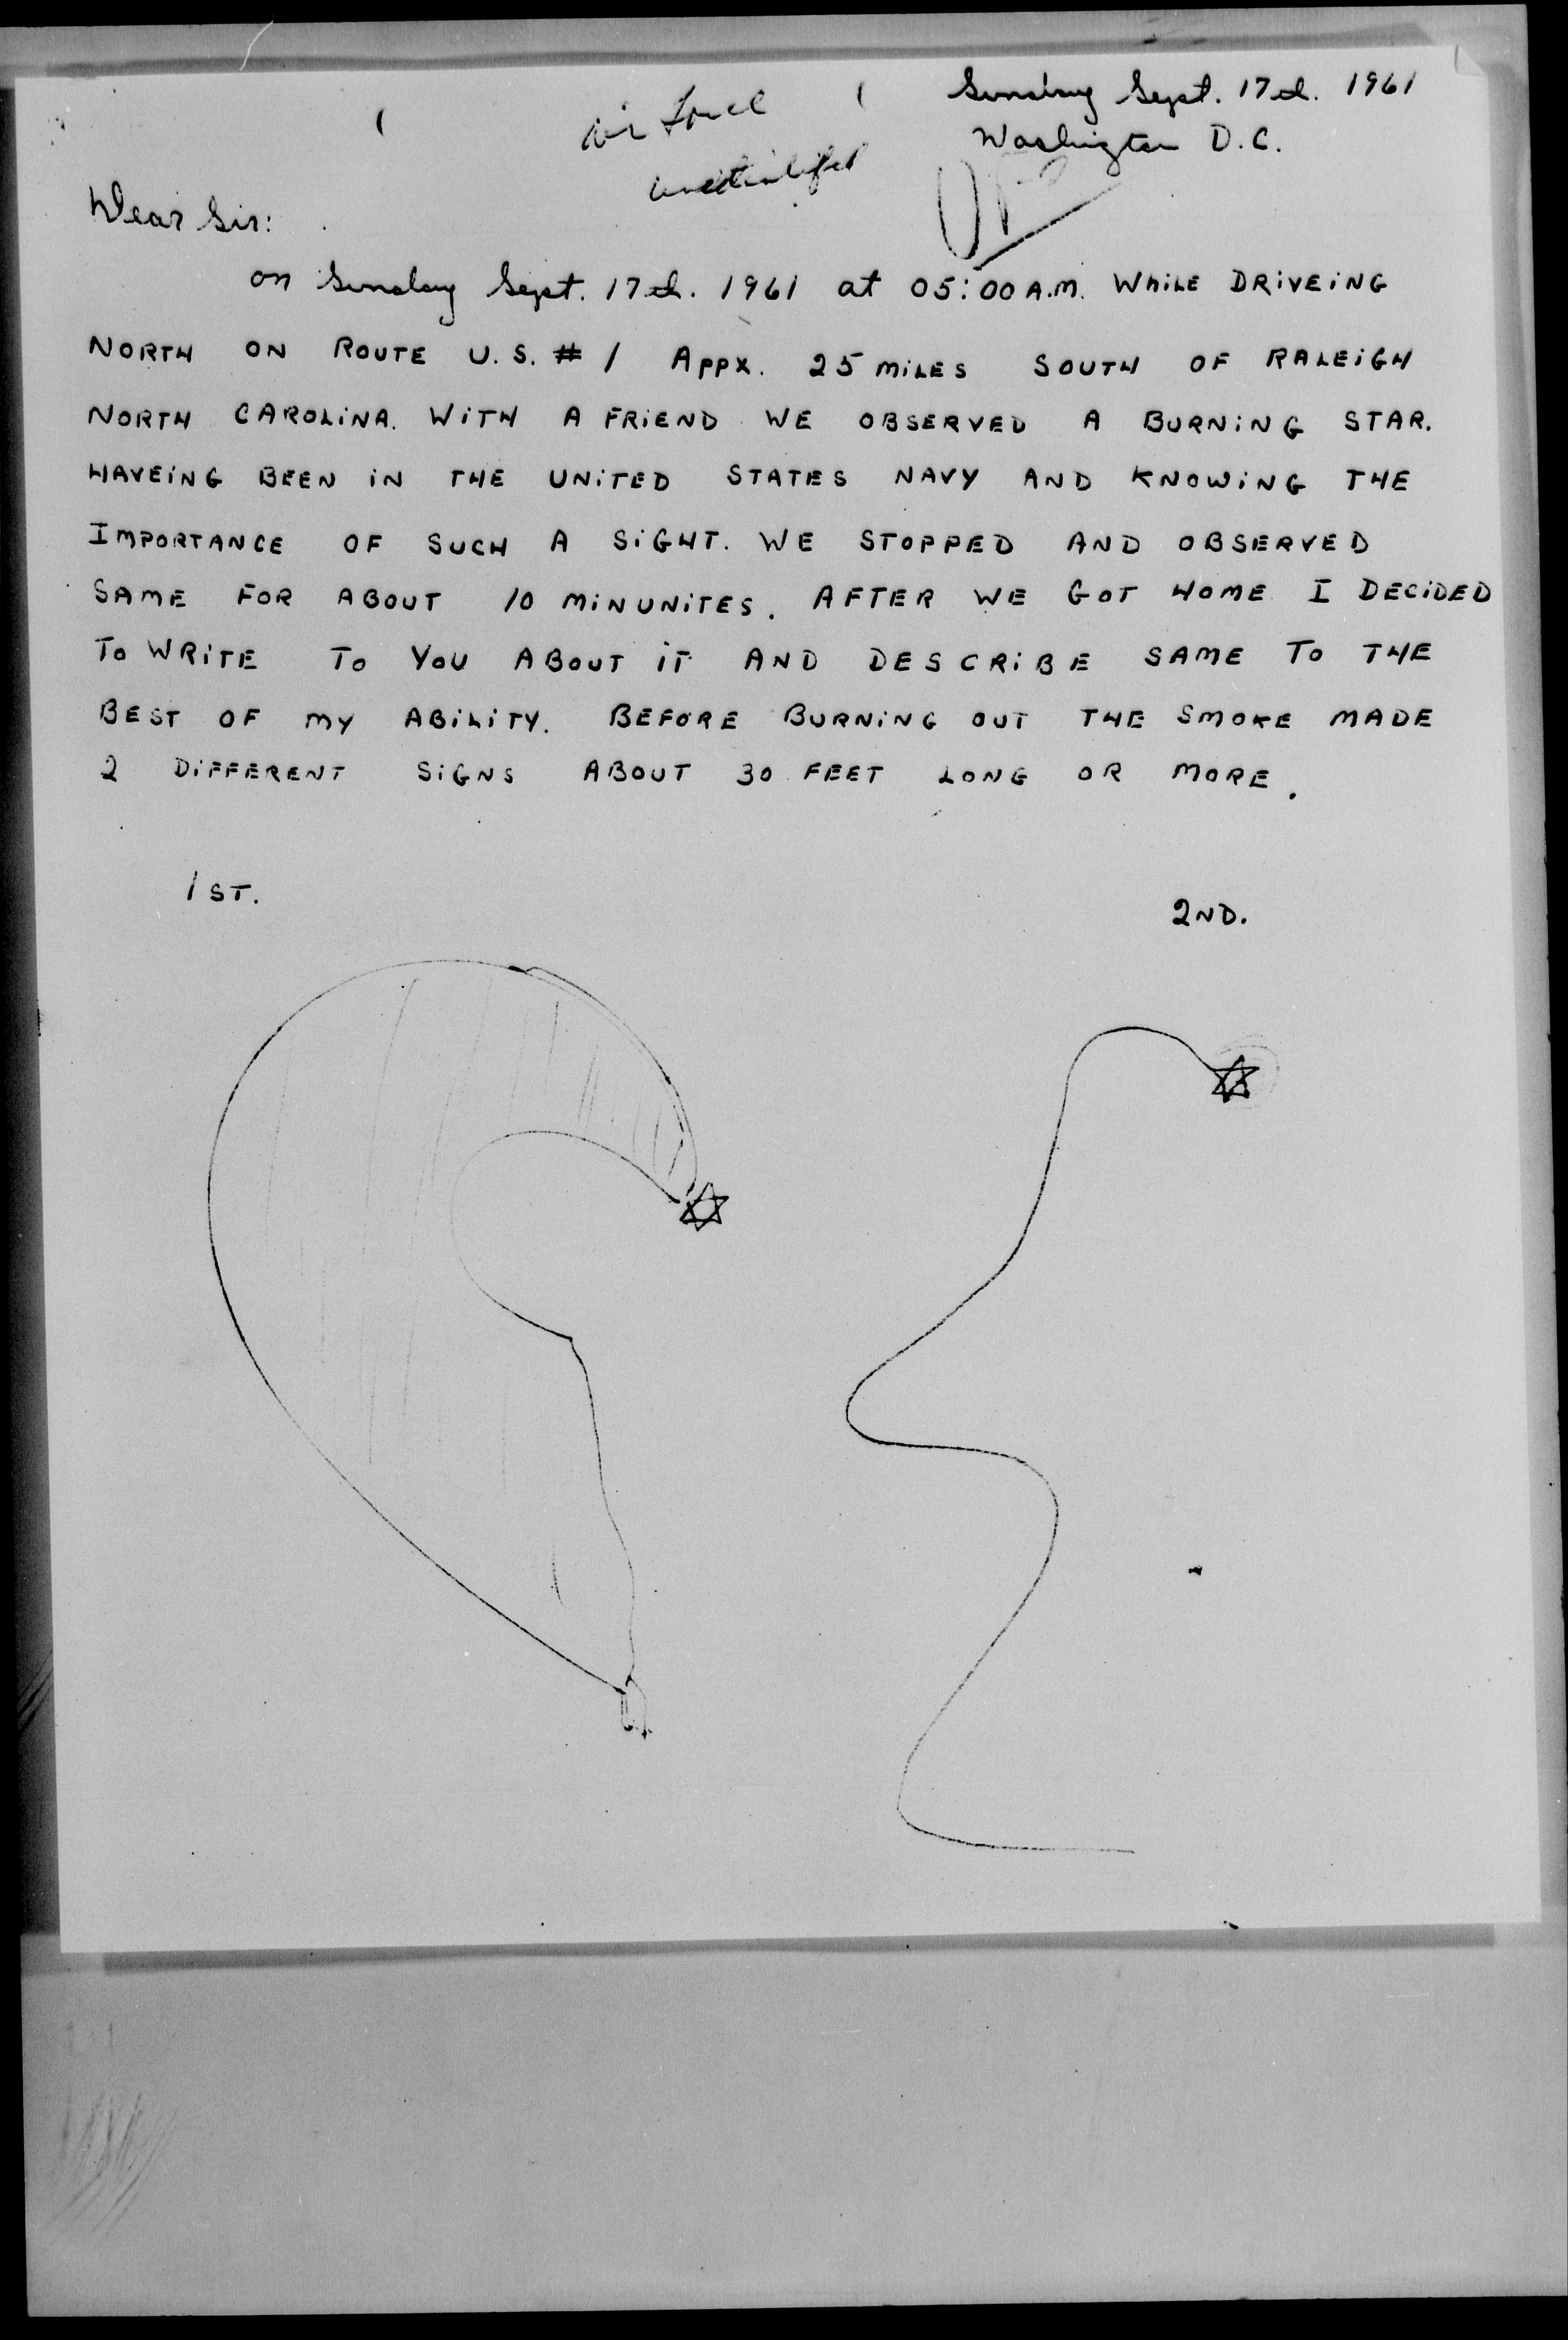 Sunday Sept. 17th. 1961
Air Force
Washington D.C.
Dear Sir:
on Sunday Sept. 17th. 1961 at 05:00 A.M. WHILE DRIVEING
NORTH ON ROUTE U.S. # 1 APPX. 25 MILES SOUTH OF RALEIGH
NORTH CAROLINA. WITH A FRIEND WE OBSERVED A BURNING STAR.
HAVEING BEEN IN THE UNITED STATES NAVY AND KNOWING THE
IMPORTANCE OF SUCH A SIGHT. WE STOPPED AND OBSERVED
SAME FOR ABOUT 10 MINUNITES. AFTER WE GOT HOME I DECIDED
TO WRITE TO YOU ABOUT IT AND DESCRIBE SAME TO THE
BEST OF MY ABILITY. BEFORE BURNING OUT THE SMOKE MADE
2 DIFFERENT SIGNS ABOUT 30 FEET LONG OR MORE.
1ST.
2ND.